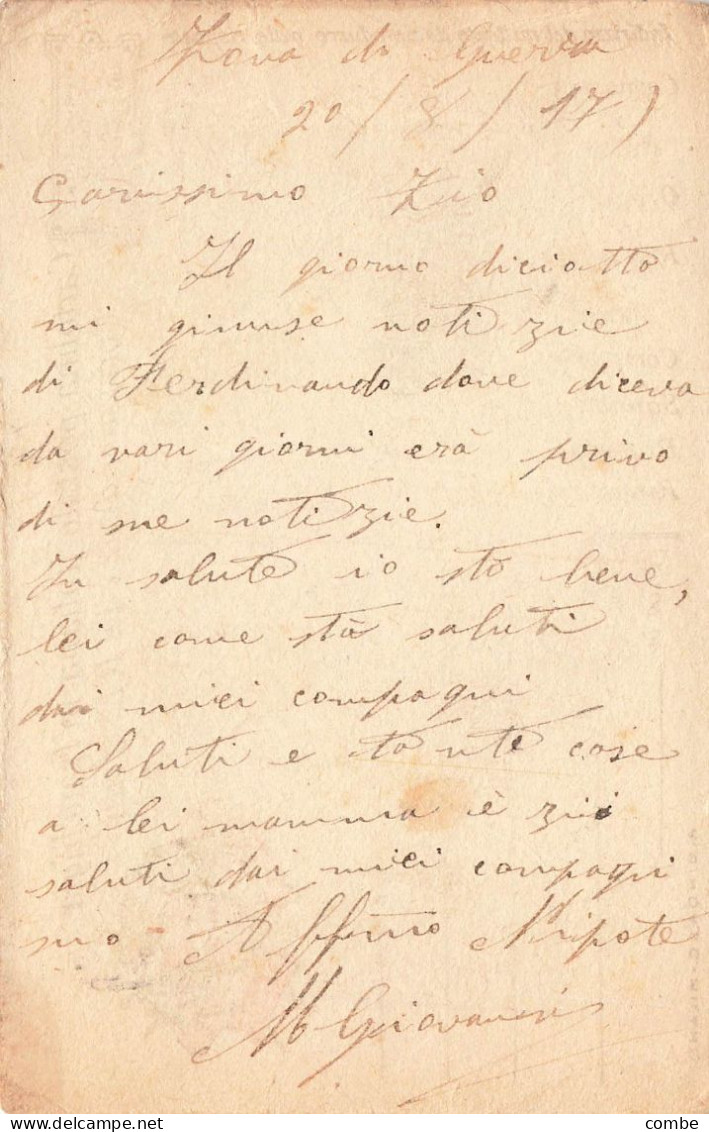 Zona di Guerra
20/8/17)
Carissimo Zio
Il giorno diciotto
mi giunse notizie
di Ferdinando dove diceva
da vari giorni erà privo
di me notizie.
In salute io stò bene,
lei come stà saluti
dai miei compagni
Saluti e tante cose
a lei mamma è zii
saluti dai miei compagni
mo Affmo Nipote
M Giovanni
combe
delcampe.net